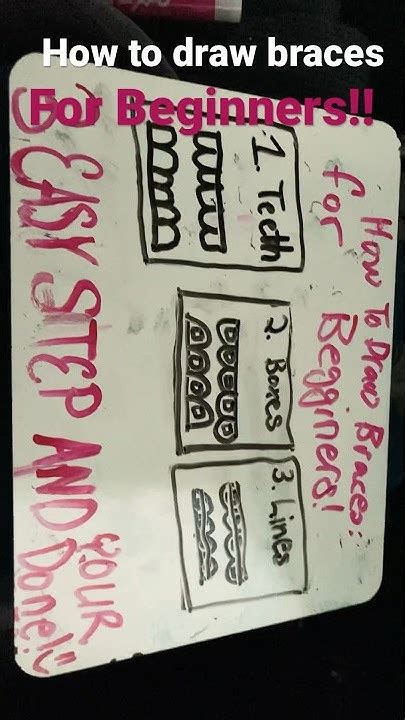 How to draw braces
For Beginners!!
How To Draw Braces:
for Begginers!
1. Teeth
2. Boxes
3. Lines
3 EASY STEP AND YOUR
Done!!